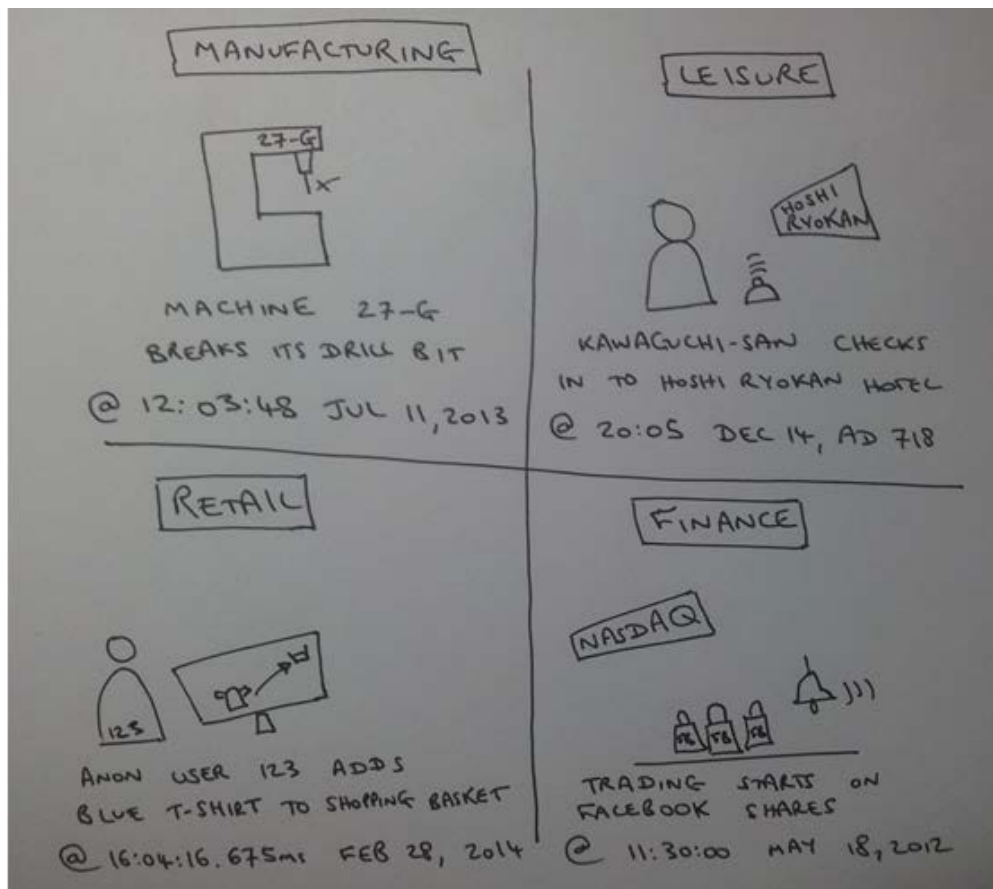 MANUFACTURING
27-G
MACHINE 27-G
BREAKS ITS DRILL BIT
@ 12:03:48 JUL 11, 2013
LEISURE
HOSHI
RYOKAN
KAWAGUCHI-SAN CHECKS
IN TO HOSHI RYOKAN HOTEL
@ 20:05 DEC 14, AD 718
RETAIL
123
ANON USER 123 ADDS
BLUE T-SHIRT TO SHOPPING BASKET
@ 16:04:16.675ms FEB 28, 2014
FINANCE
NASDAQ
FB FB FB
TRADING STARTS ON
FACEBOOK SHARES
@ 11:30:00 MAY 18, 2012